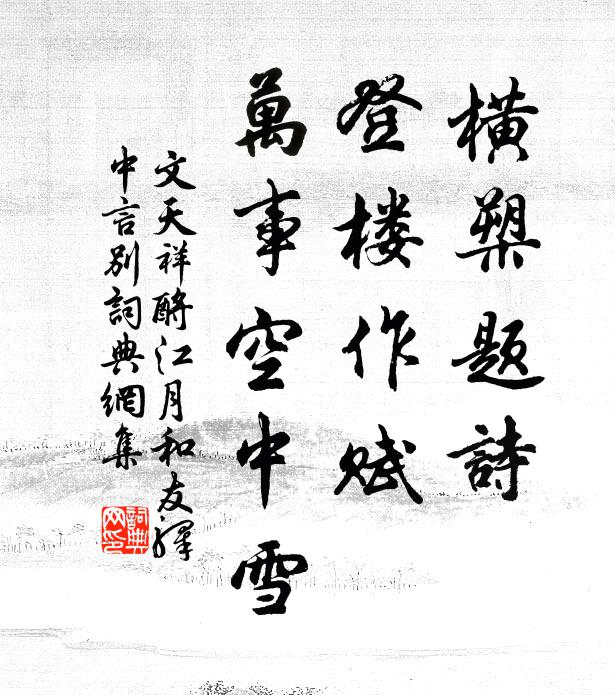 橫槊題詩
登楼作賦
萬事空中雪
文天祥酹江月和友驛
中言別詞典網集
詞典
网印